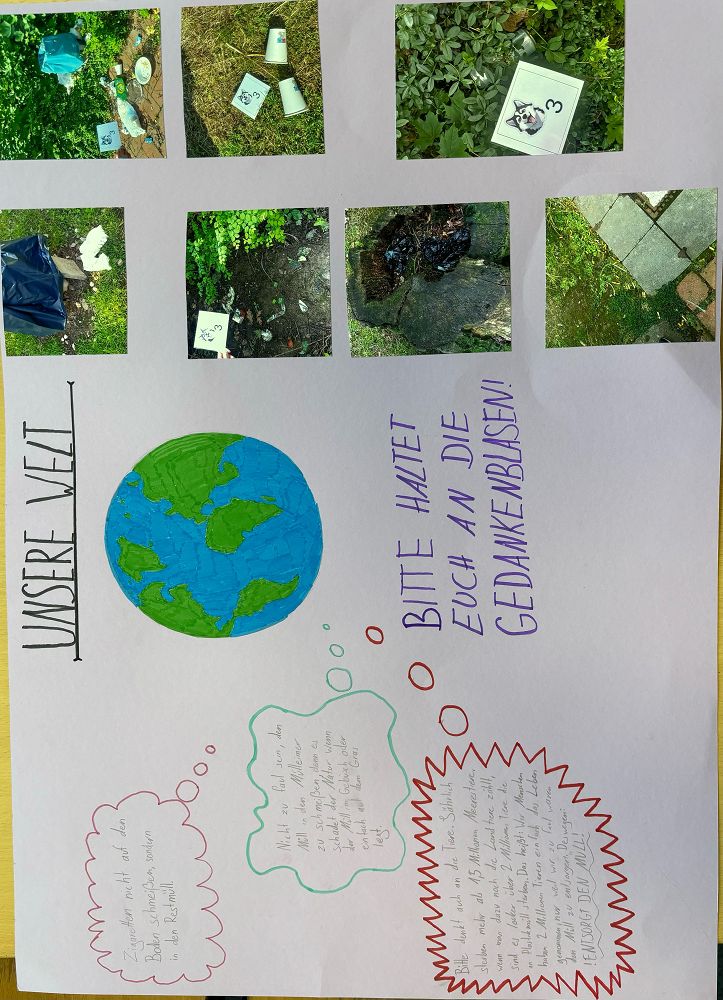 UNSERE WELT
Zigaretten nicht auf den
Boden schmeißen, sondern
in den Restmüll.
Nicht zu faul sein, den
Müll in den Mülleimer
zu schmeißen, denn es
schadet der Natur wenn
der Müll im Gebüsch oder
einfach auf dem Gras
liegt
BITTE HALTET
EUCH AN DIE
GEDANKENBLASEN!
Bitte denkt auch an die Tiere. Jährlich
sterben mehr als 1,5 Millionen Meerestiere,
wenn man dazu noch die Landtiere zählt,
sind es locker über 2 Millionen Tiere die
an Plastikmüll sterben. Das heißt: Wir Menschen
haben 2 Millionen Tieren einfach das Leben
genommen, nur weil wir zu faul waren
den Müll zu entsorgen. Deswegen:
!ENTSORGT DEN MÜLL!
3
3
3
3
3